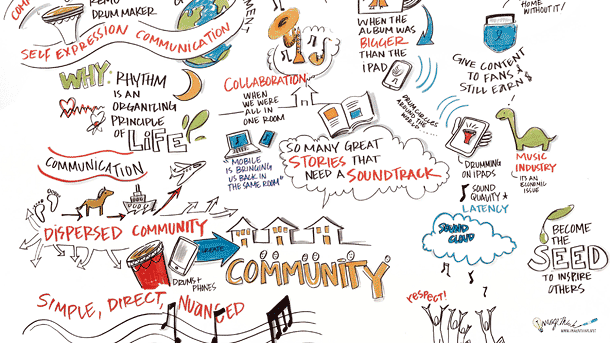 REMO
DRUM MAKER
SELF EXPRESSION COMMUNICATION
WHY:
RHYTHM
IS AN
ORGANIZING
PRINCIPLE
OF LiFE!
COMMUNICATION
DISPERSED COMMUNITY
DRUMS +
PHONES
CREATE
COMMUNITY
SIMPLE, DIRECT, NUANCED
COLLABORATION
WHEN
WE WERE
ALL IN
ONE ROOM
"MOBILE
IS BRINGING
US BACK IN
THE SAME ROOM"
SO MANY GREAT
STORIES THAT
NEED A SOUNDTRACK
WHEN THE
ALBUM WAS
BIGGER
THAN THE
IPAD
DRUM CIRCLES
AROUND THE
WORLD...
DRUMMING
ON IPADS
SOUND
QUALITY *
LATENCY
SOUND
CLOUD
respect!
HOME
WITHOUT IT!
GIVE CONTENT
TO FANS &
STILL EARN $
MUSIC
INDUSTRY
IT'S AN
ECONOMIC
ISSUE
BECOME
THE
SEED
TO INSPIRE
OTHERS
ImageThink